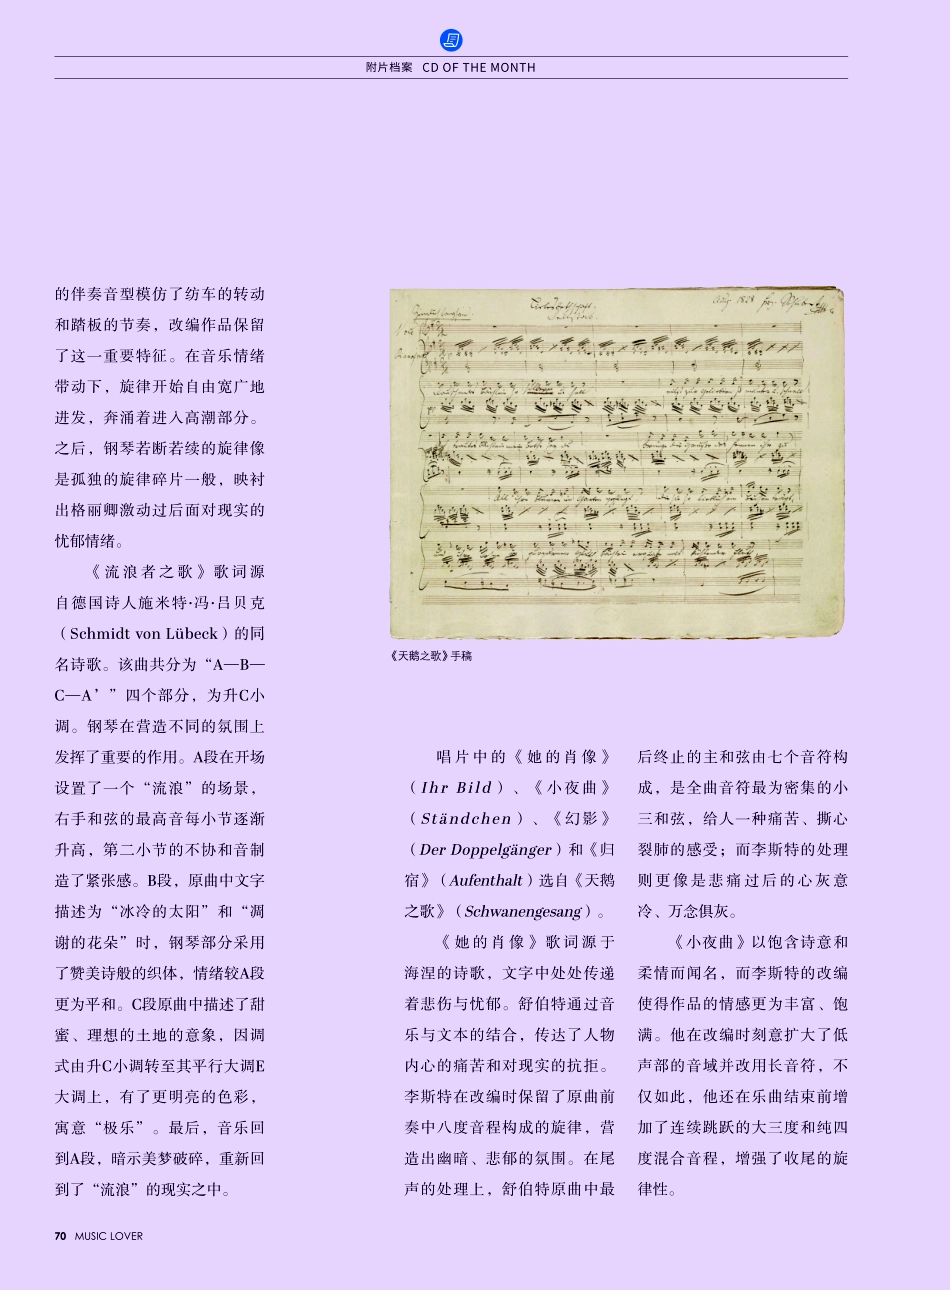 附片档案 CD OF THE MONTH
的伴奏音型模仿了纺车的转动
和踏板的节奏，改编作品保留
了这一重要特征。在音乐情绪
带动下，旋律开始自由宽广地
迸发，奔涌着进入高潮部分。
之后，钢琴若断若续的旋律像
是孤独的旋律碎片一般，映衬
出格丽卿激动过后面对现实的
忧郁情绪。
《流浪者之歌》歌词源
自德国诗人施米特·冯·吕贝克
（Schmidt von Lübeck）的同
名诗歌。该曲共分为“A—B—
C—A’”四个部分，为升C小
调。钢琴在营造不同的氛围上
发挥了重要的作用。A段在开场
设置了一个“流浪”的场景，
右手和弦的最高音每小节逐渐
升高，第二小节的不协和音制
造了紧张感。B段，原曲中文字
描述为“冰冷的太阳”和“凋
谢的花朵”时，钢琴部分采用
了赞美诗般的织体，情绪较A段
更为平和。C段原曲中描述了甜
蜜、理想的土地的意象，因调
式由升C小调转至其平行大调E
大调上，有了更明亮的色彩，
寓意“极乐”。最后，音乐回
到A段，暗示美梦破碎，重新回
到了“流浪”的现实之中。
《天鹅之歌》手稿
唱片中的《她的肖像》
（Ihr Bild）、《小夜曲》
（Ständchen）、《幻影》
（Der Doppelgänger）和《归
宿》（Aufenthalt）选自《天鹅
之歌》（Schwanengesang）。
《她的肖像》歌词源于
海涅的诗歌，文字中处处传递
着悲伤与忧郁。舒伯特通过音
乐与文本的结合，传达了人物
内心的痛苦和对现实的抗拒。
李斯特在改编时保留了原曲前
奏中八度音程构成的旋律，营
造出幽暗、悲郁的氛围。在尾
声的处理上，舒伯特原曲中最
后终止的主和弦由七个音符构
成，是全曲音符最为密集的小
三和弦，给人一种痛苦、撕心
裂肺的感受；而李斯特的处理
则更像是悲痛过后的心灰意
冷、万念俱灰。
《小夜曲》以饱含诗意和
柔情而闻名，而李斯特的改编
使得作品的情感更为丰富、饱
满。他在改编时刻意扩大了低
声部的音域并改用长音符，不
仅如此，他还在乐曲结束前增
加了连续跳跃的大三度和纯四
度混合音程，增强了收尾的旋
律性。
70 MUSIC LOVER